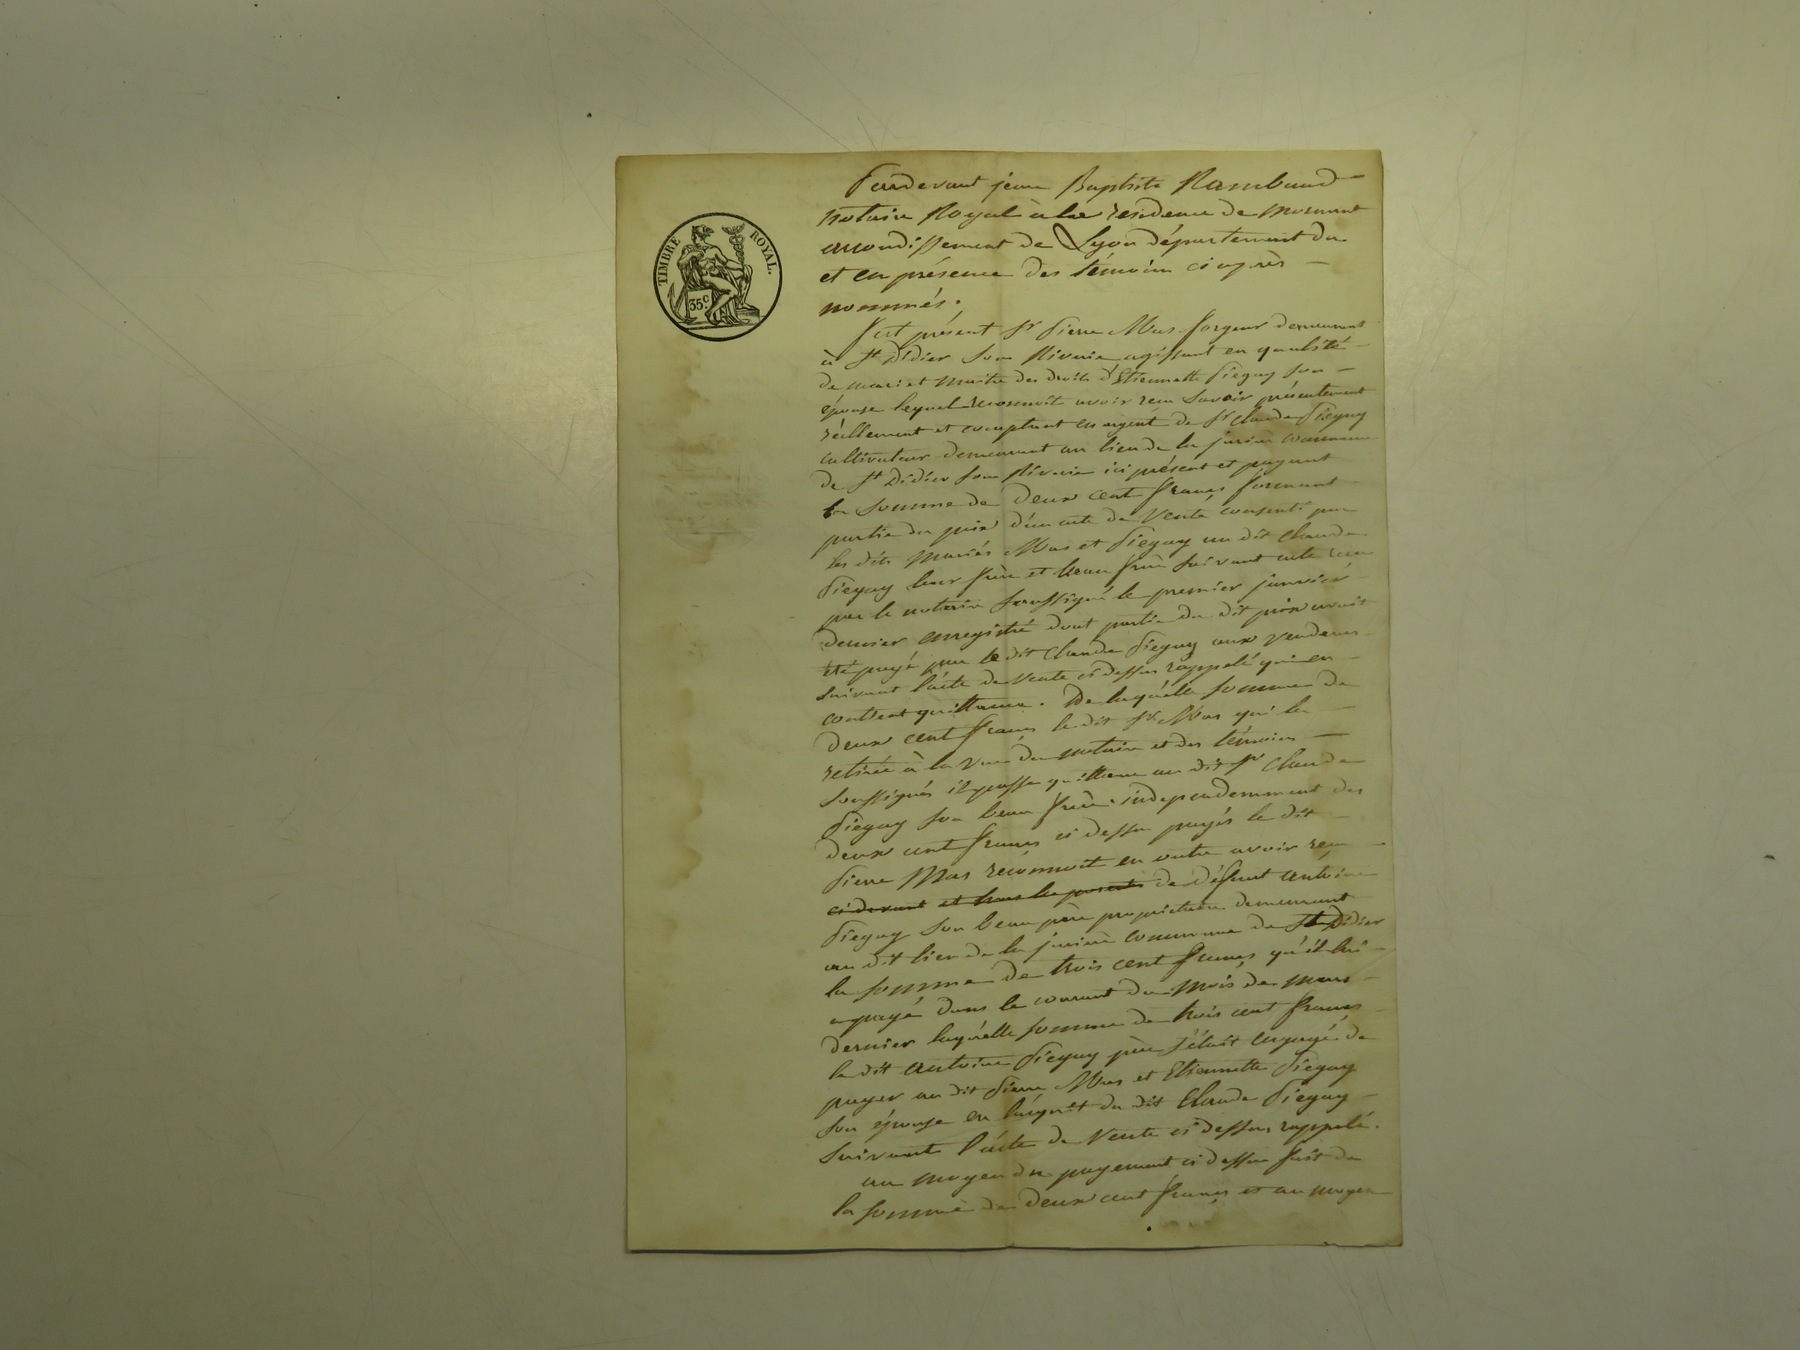 TIMBRE ROYAL.
35c
Pardevant jean Baptiste Rambaud
notaire Royal à la residence de mornant
arrondissement de Lyon département du
et en présence des témoins ci après
nommés.
fut présent Sr Pierre Mas forgeur demeurant
à St Didier sous Riverie agissant en qualité
de mari et maitre des droits d'Etiennette Piegay son
épouse lequel reconnoit avoir reçu savoir présentement
réellement et comptant en argent de Sr Claude Piegay
cultivateur demeurant au lieu de la commune
de St Didier sous Riverie ici présent et payant
la somme de deux cent francs formant
partie du prix d'un acte de Vente consenti par
les dits mariés Mas et Piegay au dit Claude
Piegay leur frère et beau frère suivant acte reçu
par le notaire soussigné le premier janvier
dernier enregistré dont partie du dit prix avoit
été payé par le dit Claude Piegay aux vendeurs
suivant l'acte de Vente ci dessus rappelé qui en
contient quittance. De laquelle somme de
deux cent francs le dit Sr Mas qui la
retirée à la vue du notaire et des témoins
soussignés il passe quittance au dit Sr Claude
Piegay son beau frère. independemment des
deux cent francs ci dessus payés le dit
Pierre Mas reconnoit en outre avoir reçu
ci devant et hors les presentes de défunt antoine
Piegay son beau père propriétaire demeurant
au dit lieu de la commune de St Didier
la somme de trois cent francs qu'il lui
a payé dans le courant du mois de mars
dernier laquelle somme de trois cent francs
le dit antoine Piegay père s'étoit engagé de
payer au dit Pierre Mas et Etiennette Piegay
son épouse en l'acquit du dit Claude Piegay
suivant l'acte de Vente ci dessus rappelé.
au moyen du payement ci dessus fait de
la somme de deux cent francs et au moyen